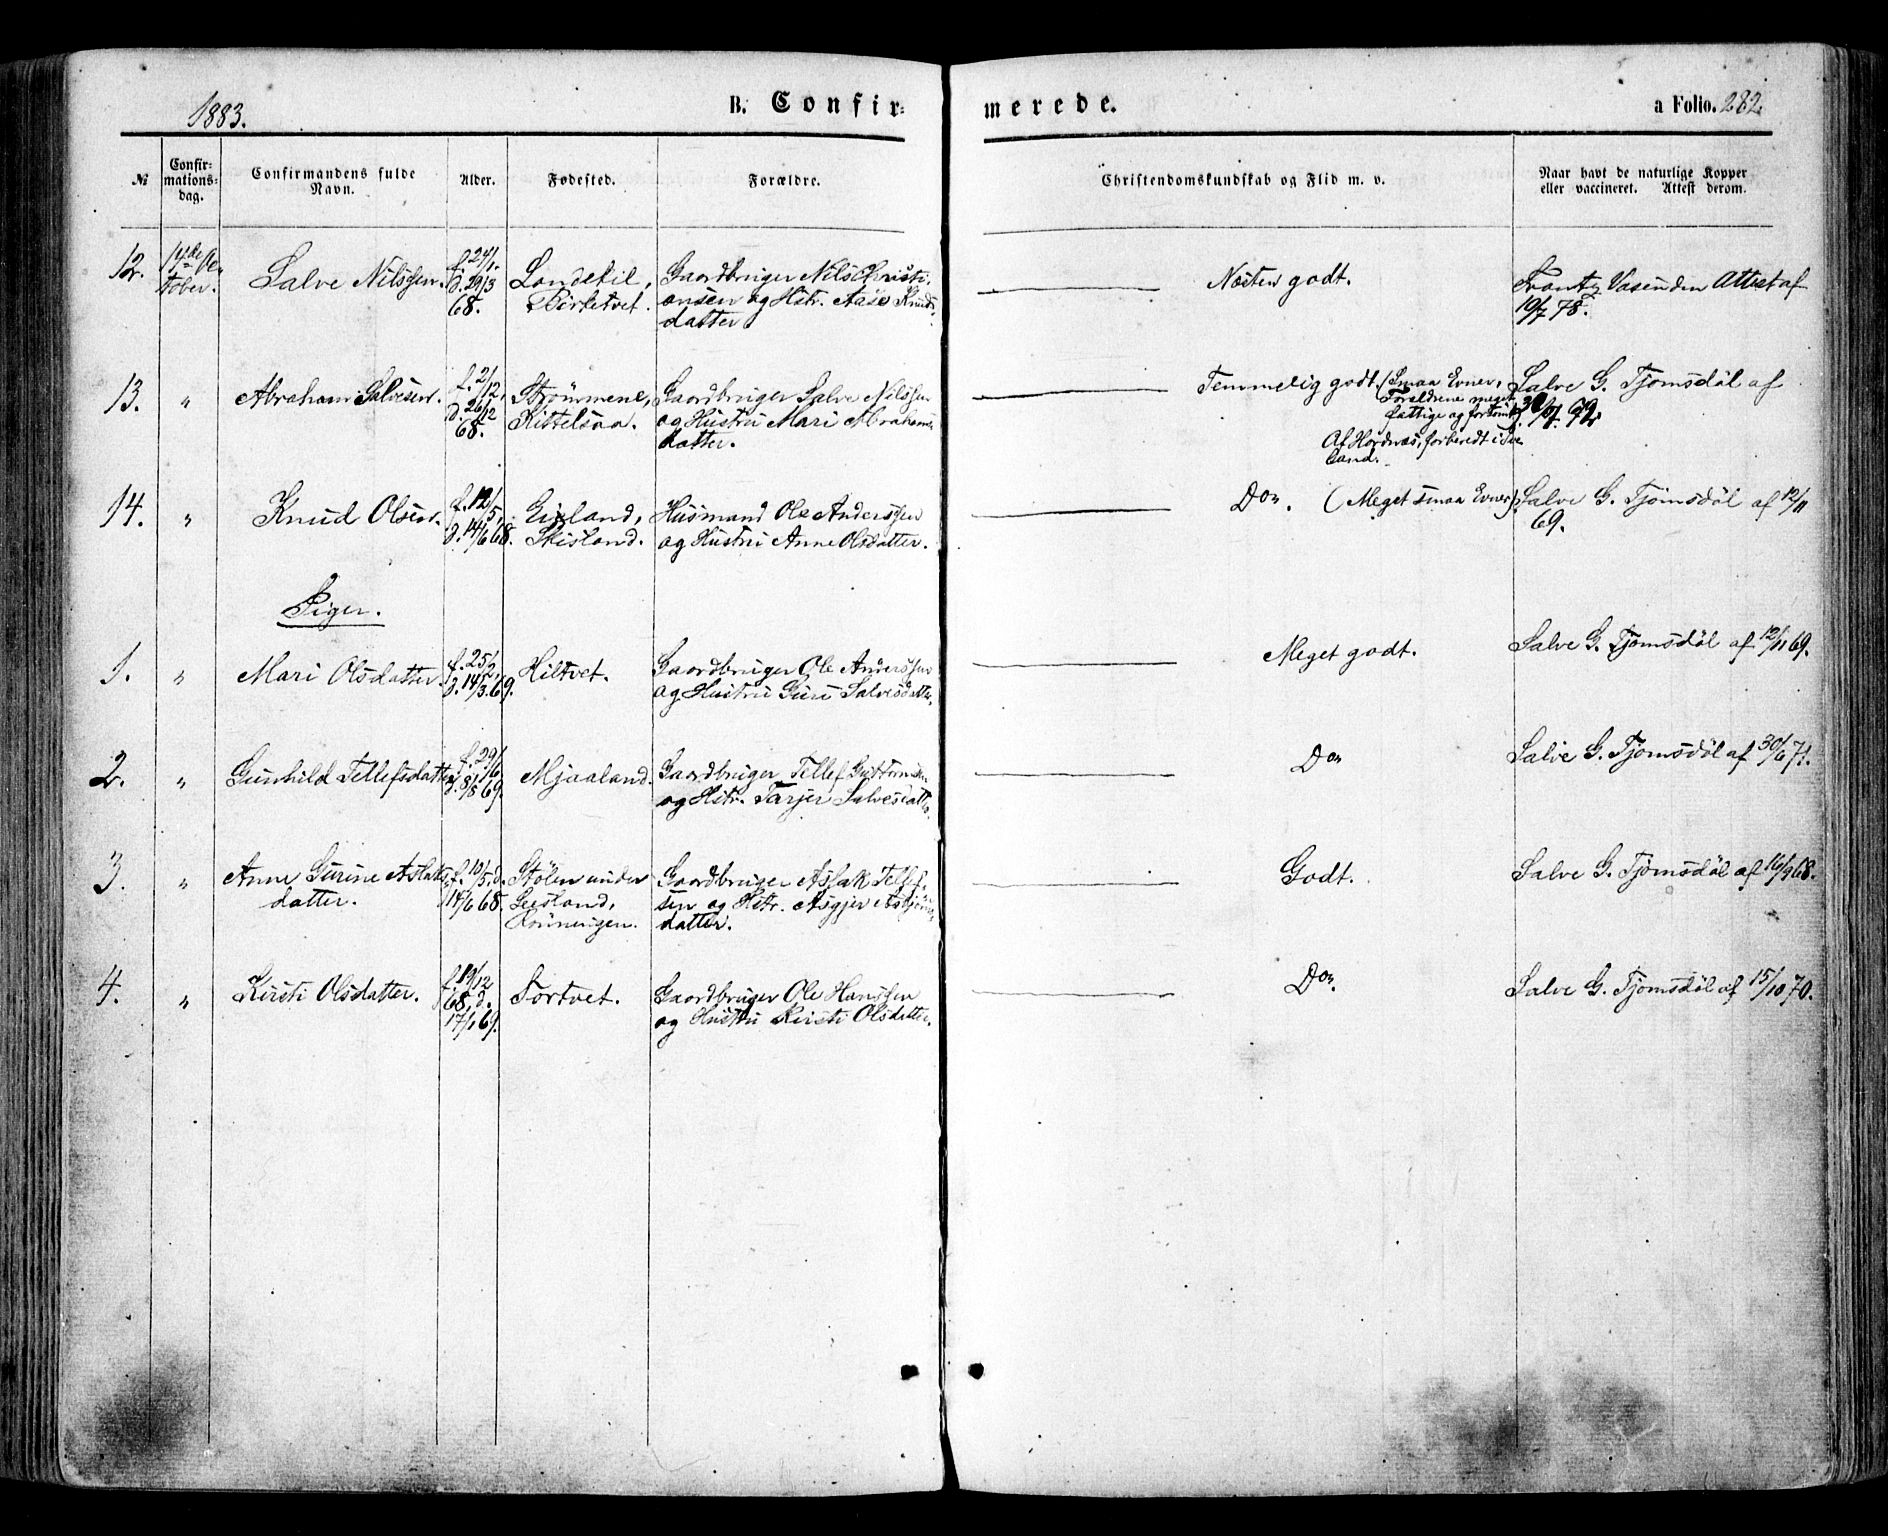 1883.
B. Confirmerede.
a Folio. 282.
№
Confirmationsdag.
Confirmandens fulde Navn.
Alder.
Fødested.
Forældre.
Christendomskundskab og Flid m. v.
Naar havt de naturlige Kopper eller vaccineret. Attest derom.
12. 14de Oktober. Salve Nilssen. f. 24/1. d. 29/3 68. Landskil, Birketvet. Gaardbruger Nils Christiansen og Hstr. Aase Knudsdatter Næsten godt. Frantz Vasenden Attest af 19/7 78.
13. " Abraham Salvesen. f. 2/12, d. 26/12 68. Strømmene, Kittelsaa. Gaardbruger Salve Nilssen og Hustru Mari Abrahamsdatter. Temmelig godt. (Smaa Evner, Forældrene meget fattige og
Af Hordnæs, forberedt i
Salve G. Tjomsdøl af 72.
14. " Knud Olsen. f. 12/5, d. 14/6 68. Eigland, Skisland. Husmand Ole Anderssen og Hustru Anne Olsdatter. Do. (Meget smaa Evner) Salve G. Tjomsdøl af 12/11 69.
Piger.
1. " Mari Olsdatter f. 25/ d. 14/3. 69. Hiltvet. Gaardbruger Ole Anderssen og Hustru Guri Salvesdatter. Meget godt. Salve G. Tjomsdøl af 12/11 69.
2. " Gunhild Tellefsdatter f. 29/6 d. 8/8 69. Mjaaland. Gaardbruger Tellef Guttormsen og Hstr. Tarjer Salvesdatter. Do Salve G. Tjomsdøl af 30/6 71.
3. " Anne Gurine Aslaksdatter. f. 19/5. d. 14/6 68. Stølen under Geisland, Gaardbruger Aslak Tellefsen og Hstr. Asgjer Asbjørnsdatter. Godt. Salve G. Tjomsdøl af 16/9 68.
4. " Kirsti Olsdatter. f. 19/12 68, d. 17/1 69. Tortvet. Gaardbruger Ole Hanssen og Hustru Kirsti Olsdatter. Do. Salve G. Tjomsdøl af 15/10 70.